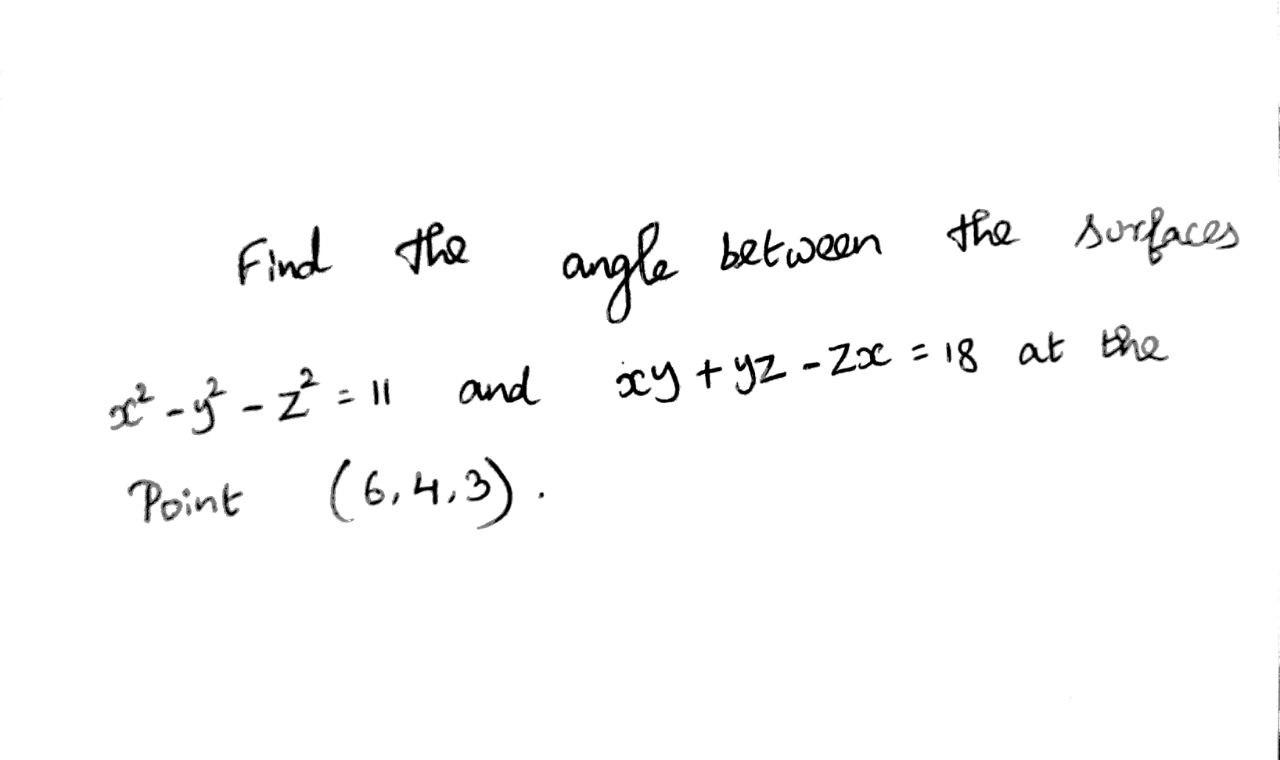 Find the angle between the surfaces
x² - y² - z² = 11 and xy + yz - zx = 18 at the
Point (6,4,3).